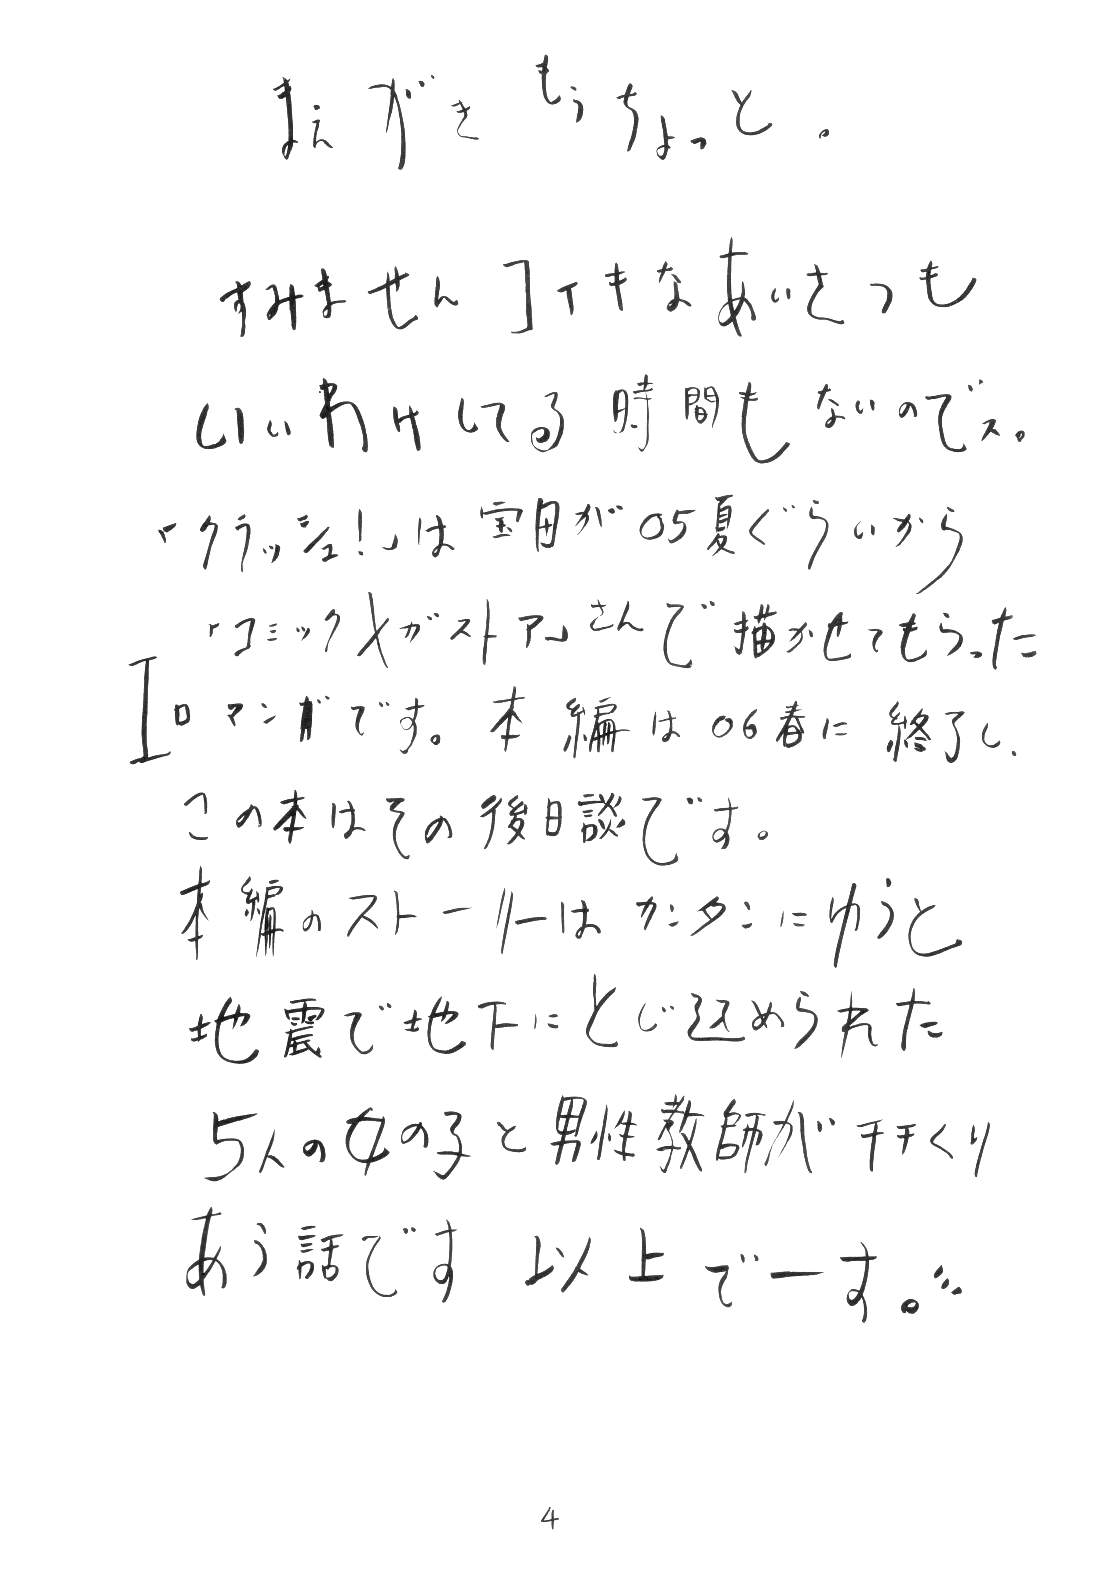 まえがきもうちょっと。
すみませんコイキなあいさつも
いいわけしてる時間もないのでス。
「クラッシュ!」は宝田が05夏ぐらいから
「コミックメガストア」さんで描かせてもらった
エロマンガです。本編は06春に終了し、
この本はその後日談です。
本編のストーリーはカンタンにゆうと
地震で地下にとじ込められた
5人の女の子と男性教師がチチくり
あう話です 以上でーす。
4